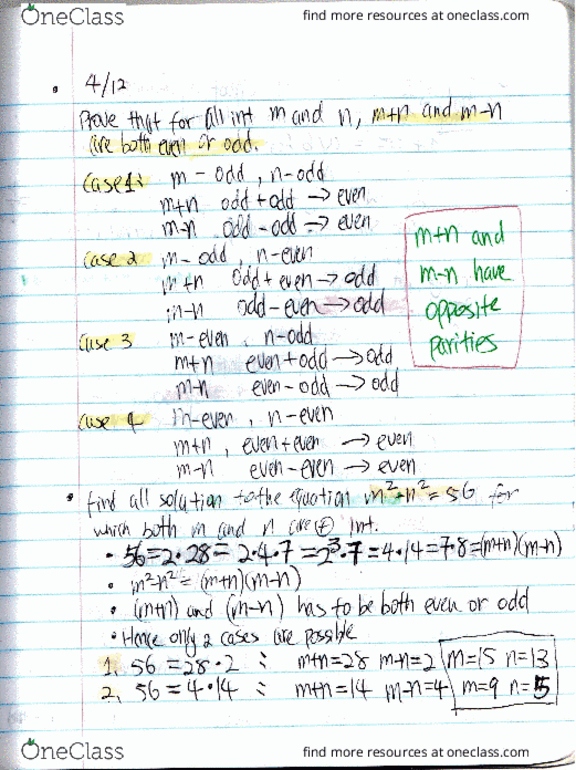 OneClass find more resources at oneclass.com
4/12
Prove that for all int m and n, m+n and m-n
are both even or odd.
Case 1: m - odd, n-odd
m+n odd+odd → even
m-n odd-odd → even
Case 2 m-odd, n-even
m+n odd+even → odd
m-n odd-even → odd
Case 3 m-even, n-odd
m+n even+odd → odd
m-n even-odd → odd
Case 4 m-even, n-even
m+n, even+even → even
m-n even-even → even
m+n and
m-n have
opposite
parities
• find all solution to the equation m²-n²=56 for
which both m and n are ⊕ int.
• 56=2·28= 2·4·7 =2³·7=4·14=7·8=(m+n)(m-n)
• m²-n²=(m+n)(m-n)
• (m+n) and (m-n) has to be both even or odd
• Hence only 2 cases are possible
1. 56=28·2 : m+n=28 m-n=2 m=15 n=13
2. 56=4·14 : m+n=14 m-n=4 m=9 n=5
OneClass find more resources at oneclass.com